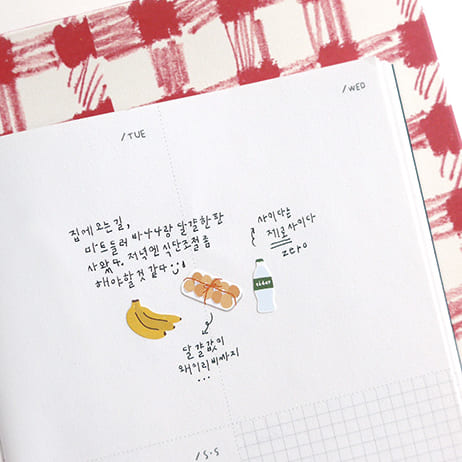 /TUE
/WED
집에 오는 길,
마트 들러 바나나랑 달걀 한 판
사 왔다. 저녁엔 식단조절 좀
해야할 것 같다
사이다는
제로 사이다
zero
cider
달걀값이
왜이리 비싸지
...
/S·S